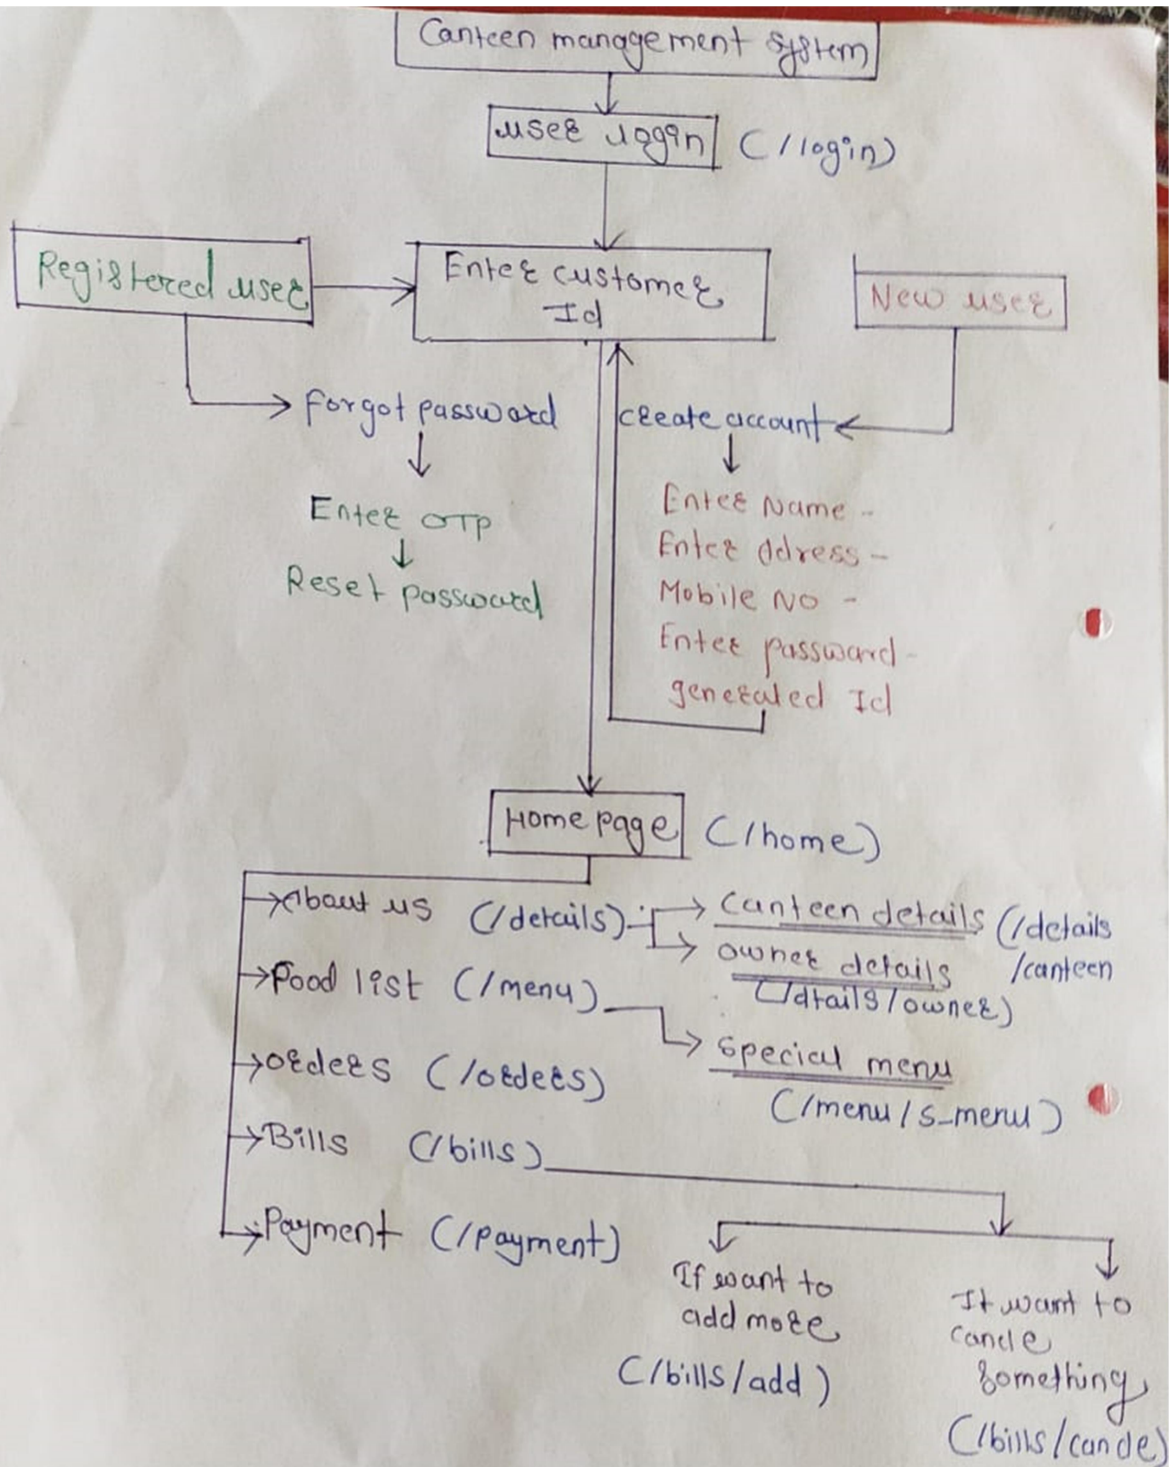 Canteen management system
user login (/login)
Registered user
Enter customer
Id
New user
forgot password
create account
Enter OTP
Reset password
Enter Name -
Enter Adress -
Mobile No -
Enter password -
generated Id
Home page (/home)
About us (/details)
canteen details (/details
/canteen
owner details
(/dtails/owner)
Food list (/menu)
special menu
(/menu/s_menu)
orders (/orders)
Bills (/bills)
Payment (/payment)
If want to
add more
(/bills/add)
If want to
cancle
something
(/bills/cancle)